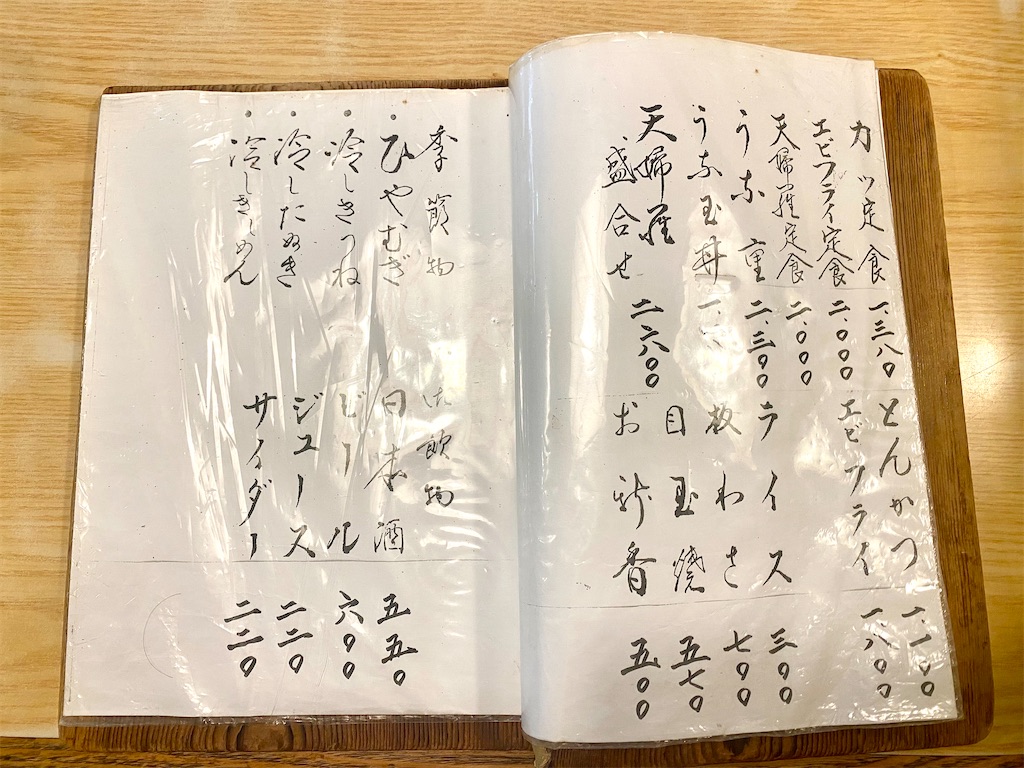 カツ定食 一、三八〇
エビフライ定食 二、〇〇〇
天婦羅定食 二、〇〇〇
うな重 二、三〇〇
うな玉丼
天婦羅
盛合せ 二、六〇〇
とんかつ 一、一〇〇
エビフライ 一、八〇〇
ライス 三〇〇
板わさ 七〇〇
目玉焼 五七〇
お新香 五〇〇
季節物
・ひやむぎ
・冷しきつね
・冷したぬき
・冷しきしめん
御飲物
日本酒 五五〇
ビール 六〇〇
ジュース 二二〇
サイダー 二二〇